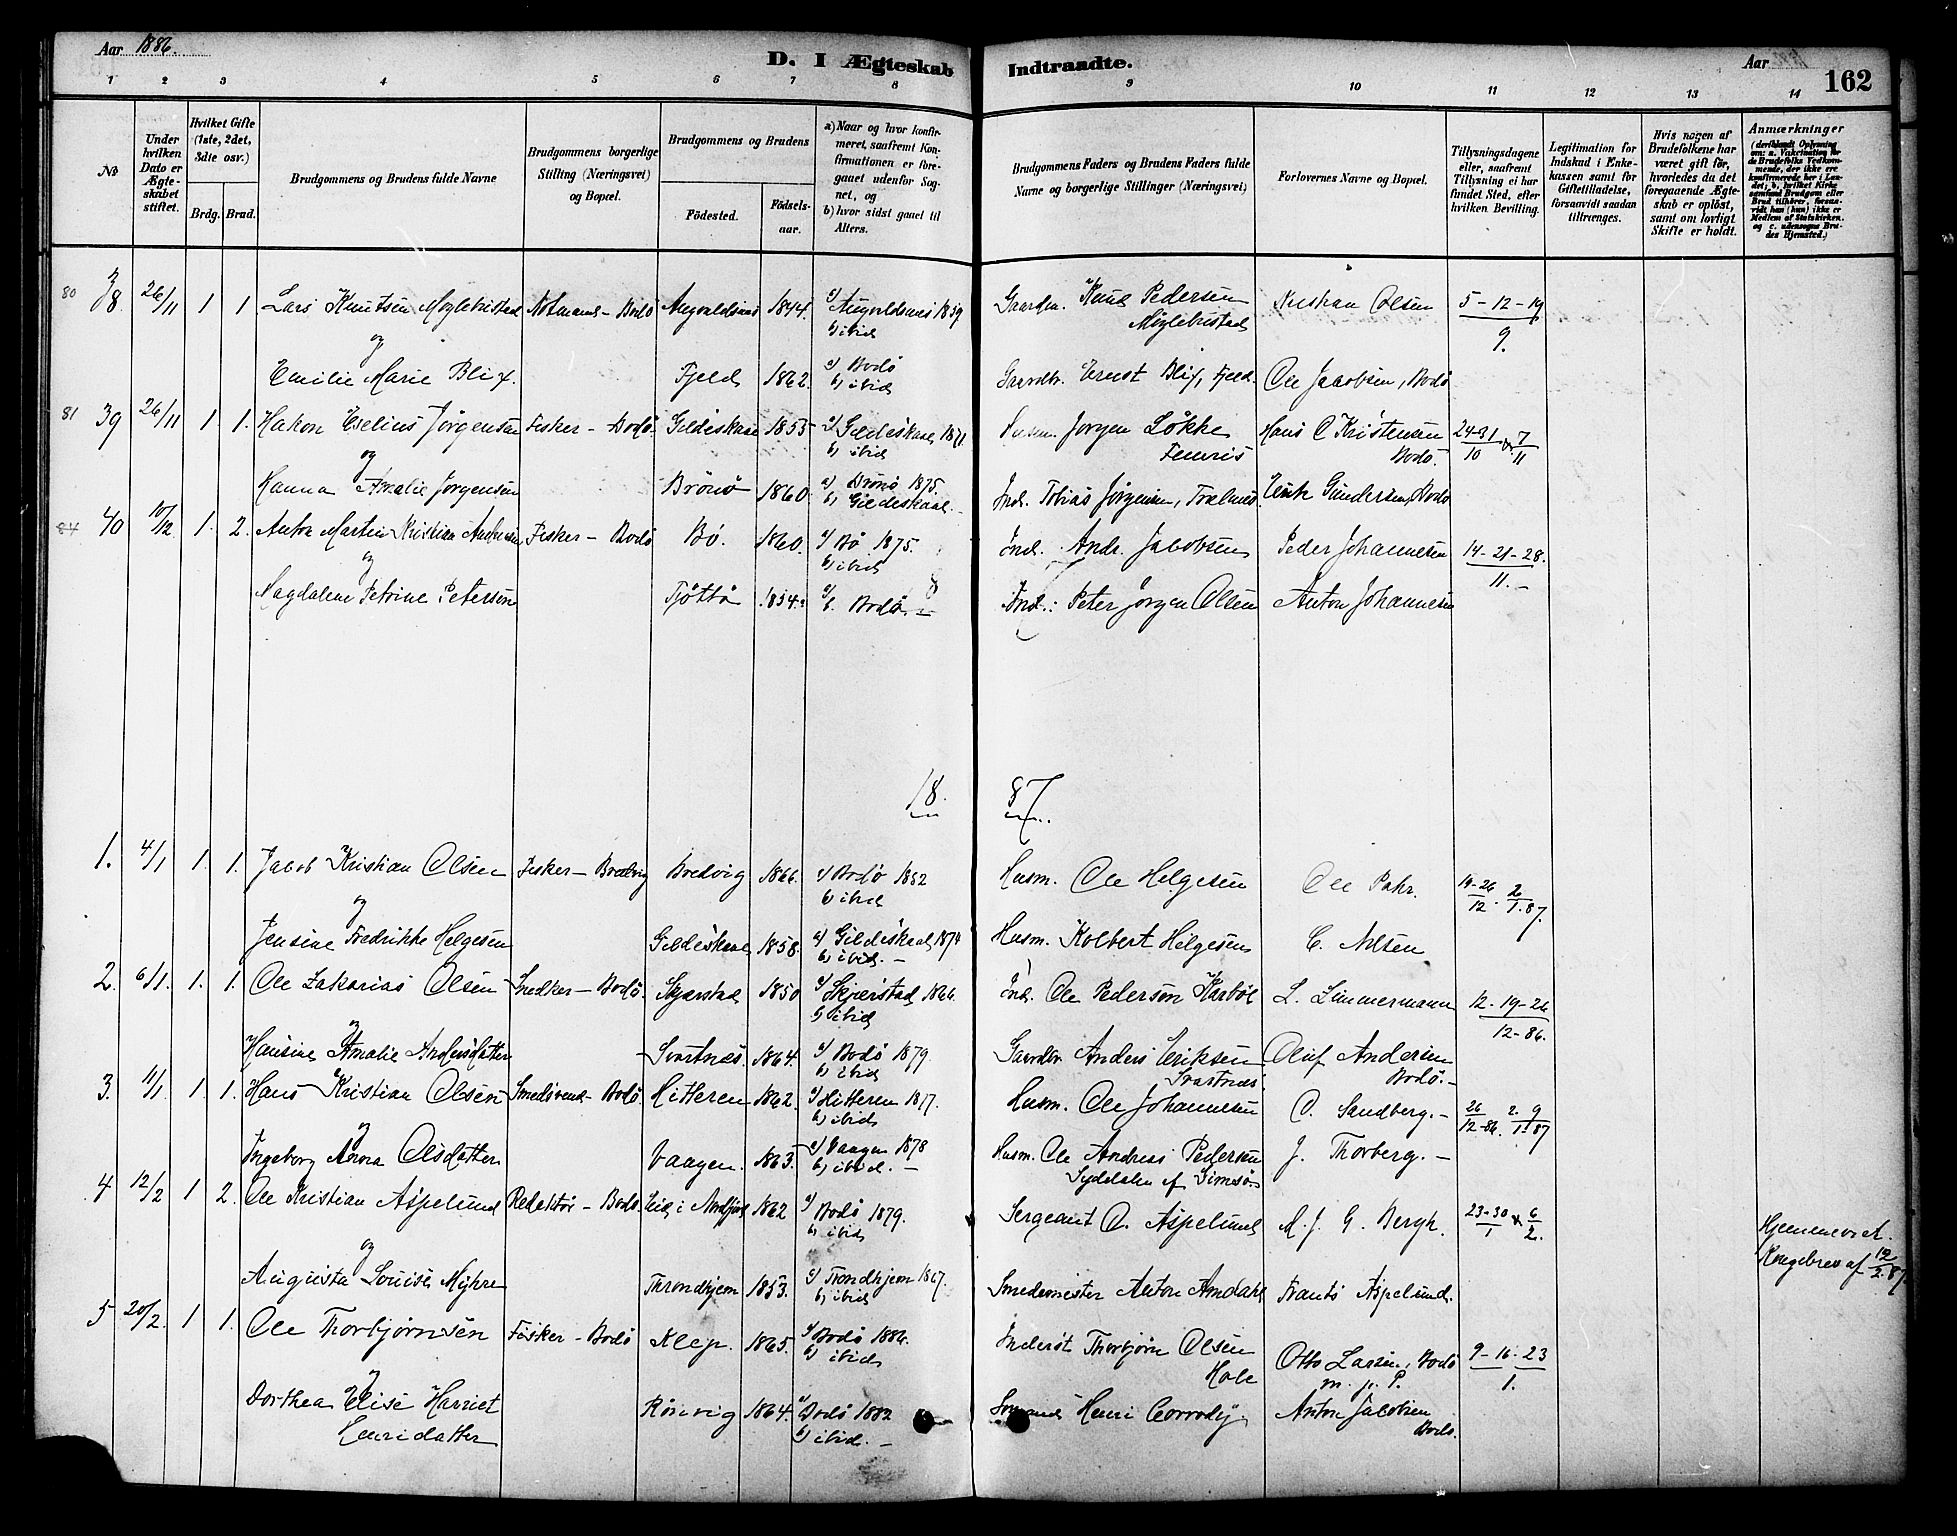 Aar 1886.
D. I Ægteskab Indtraadte.
Aar
162
1 2 3 4 5 6 7 8 9 10 11 12 13 14
No
Under hvilken Dato er Ægteskabet stiftet.
Hvilket Gifte (1ste, 2det, 3die osv.)
Brdg. Brud.
Brudgommens og Brudens fulde Navne
Brudgommens borgerlige Stilling (Næringsvei) og Bopæl.
Brudgommens og Brudens
Födested. Födselsaar.
a) Naar og hvor konfirmeret, saafremt Konfirmationen er foregaaet udenfor Sognet, og
b) hvor sidst gaaet til Alters.
Brudgommens Faders og Brudens Faders fulde Navne og borgerlige Stillinger (Næringsvei)
Forlovernes Navne og Bopæl.
Tillysningsdagene eller, saafremt Tillysning ei har fundet Sted, efter hvilken Bevilling.
Legitimation for Indskud i Enkekassen samt for Giftetilladelse, forsaavidt saadan tiltrænges.
Hvis nogen af Brudefolkene har været gift för, hvorledes da det foregaaende Ægteskab er oplöst, samt om lovligt Skifte er holdt.
Anmærkninger
(deriblandt Oplysning om: a. Vakcination for de Brudefolks Vedkommende, der ikke ere konfirmerede her i Landet; b. hvilket Kirkesamfund Brudgom eller Brud tilhörer, forsaavidt han (hun) ikke er Medlem af Statskirken, og c. udensogns Brudes Hjemsted.)
80 38 26/11 1 1 Lars Knutsen Møglebustad Notmand - Bodö Augvaldsnes 1844. a) Augvaldsnes 1859 b) ibid Gaardm. Knud Pedersen Møglebustad Kristian Olsen 5-12-19/9.
og
Emilie Marie Blix. Fjeld 1862. a) Bodö b) ibid Gaardbr. Ernst Blix, Fjeld. Ole Jacobsen, Bodö
81 39 26/11 1 1. Hakon Eselius Jörgensen Fisker - Bodö. Gildeskaal 1855 a) Gildeskaal 1871 b) ibid Husm. Jörgen Lökke Hans C Kristensen Bodö. 24-31/10 & 7/11
og
Hanna Amalie Jorgensen Brönö 1860. a) Brönö 1875. b) Gildeskaal. Ind. Tobias Jörgensen, Gundersen, Bodö
84 40 10/12 1. 2. Anton Martin Kristian Andersen Fisker - Bodö Bö. 1860. a) Bö 1875. b) ibid Ind. Andr. Jakobsen Peder Johannesen 14-21-28./11.-
og
Magdalene Petrine Petersen Tjöttö 1854. a) b. Bodö. Ind.: Peter Jörgen Olsen Anton Johannesen
18 87.
1. 4/1 1. 1. Jakob Kristian Olsen Fisker - Bredvig Bredvig 1866. a) Bodö 1882 b) ibid Husm. Ole Helgesen Ole 19-26/12. 2/1.87.
og
Jensine Fredrikke Helgesen Gildeskaal 1858. a) Gildeskaal 1874 b) ibid. - Husm. Kolbert Helgesen C. Nilsen
2. 6/1 1. 1. Ole Zakarias Olsen Snedker - Bodö. Skjærstad 1850 a) Skjerstad 1866. b) ibid Ind. Ole Pedersen Karböl L. Zimmermann 12-19-26/12-86.
og
Hansine Amalie Andersdatter Svartnes. 1864. a) Bodö 1879. b) ibid Gaardbr. Anders Eriksen Svartnes. Oluf Andersen Bodö.-
3. 11/1 1. 1. Hans Kristian Olsen Smedsvend - Bodö. Hitteren 1862. a) Hitteren 1877. b) ibid Husm. Ole Johannesen O. Sandberg.- 26/12-86. 2. 9/1.87
og
Ingeborg Anna Olsdatter Vaagen. 1863. a) Vaagen 1878 b) ibid. - Husm. Ole Andreas Pedersen Syddalen af Gimsö. J. Thorberg.-
4 12/2 1 2. Ole Kristian Aspelund Redaktör - Bodö. 1862 a) Bodö 1879. b) ibid Sergeant O. Aspelund M. J. G. Bergh. 23-30/1 & 6/2. Hjemmevict. Kongebrev af 12/2.87.
og
Augusta Louise Myhre Throndhjem 1853. a) Trondhjem 1867. b) ibid Smedemester Anton Amdahl Frants Aspelund.
5 20/2. 1 1. Ole Thorbjörnsen Fisker - Bodö Klep. 1865. a) Bodö 1886. b) ibid Inderst Thorbjörn Olsen Otto Larsen, Bodö m. p. P. 9-16-23/1.
og
Dorthea Elise Harriet Henridatter Rönvig 1864. a) Bodö 1882 b) ibid. - Henri Anton Jacobsen Bodö.